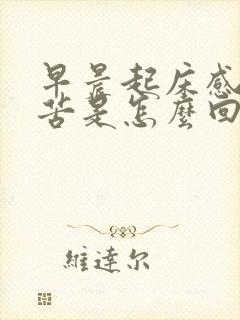 早晨起床感
苦是怎麼回
維達尔